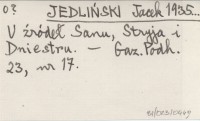 03 JEDLIŃSKI Jacek 1935...
V źródeł Sanu, Stryja i
Dniestru. — Gaz. Podh.
23, nr 17.